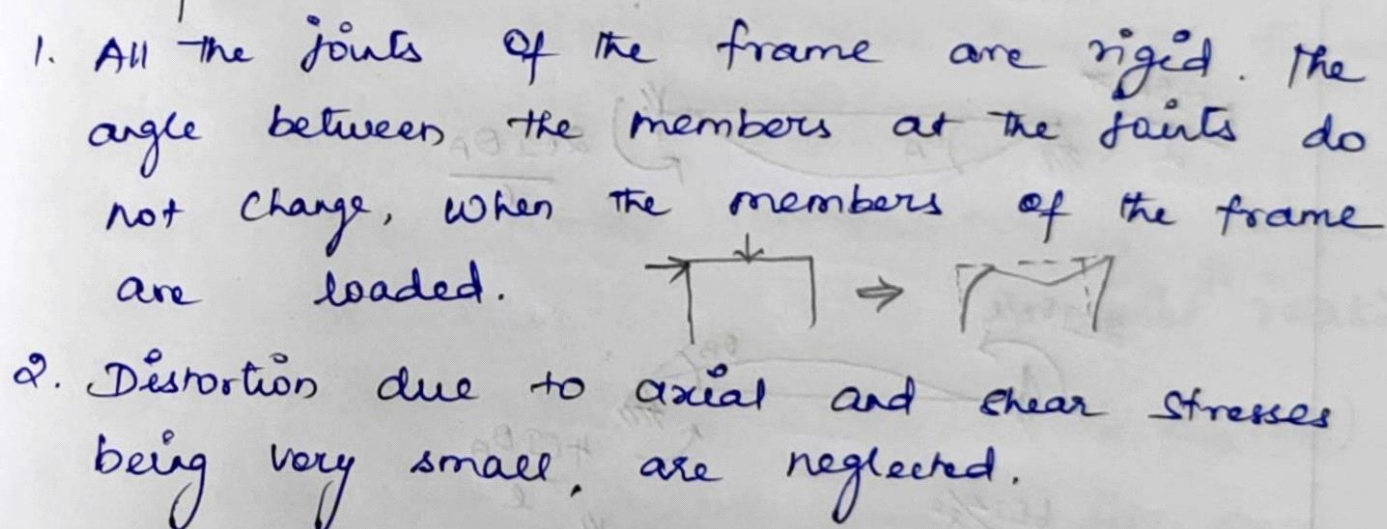 1. All the joints of the frame are rigid. The
angle between the members at the joints do
not change, when the members of the frame
are loaded.
2. Distortion due to axial and shear stresses
being very small, are neglected.